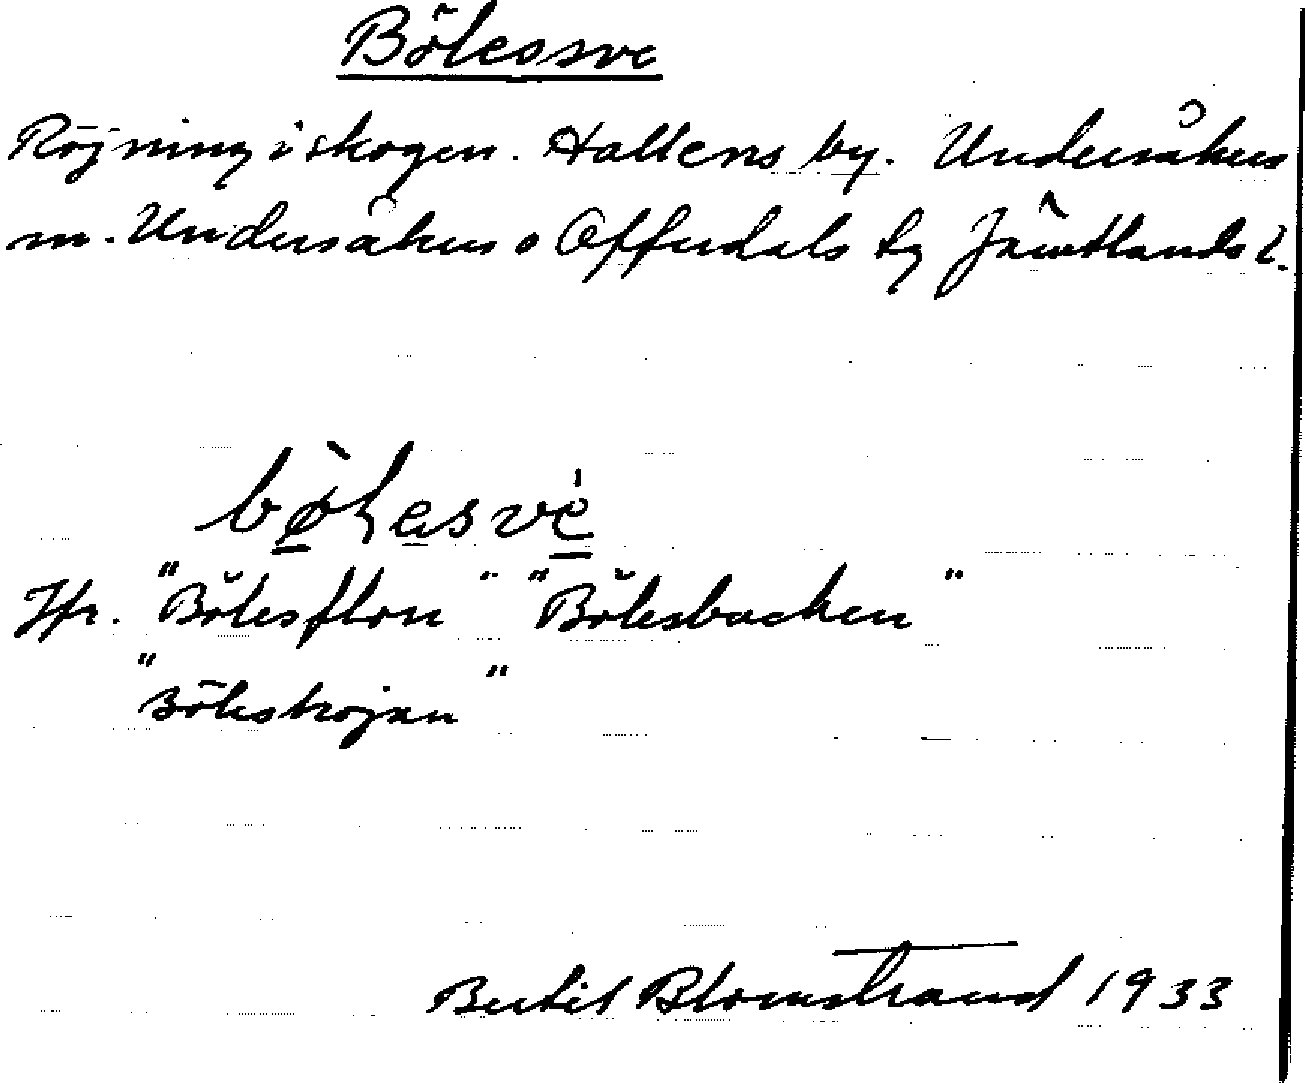 Bölessve
Röjning i skogen. Hallens by. Undersåkers
sn. Undersåkers o Offerdals tg Jämtlands l.
bølesve
Jfr. "Bölesflon" "Bölesbacken"
"Bölestrojan"
Bertil Blomstrand 1933